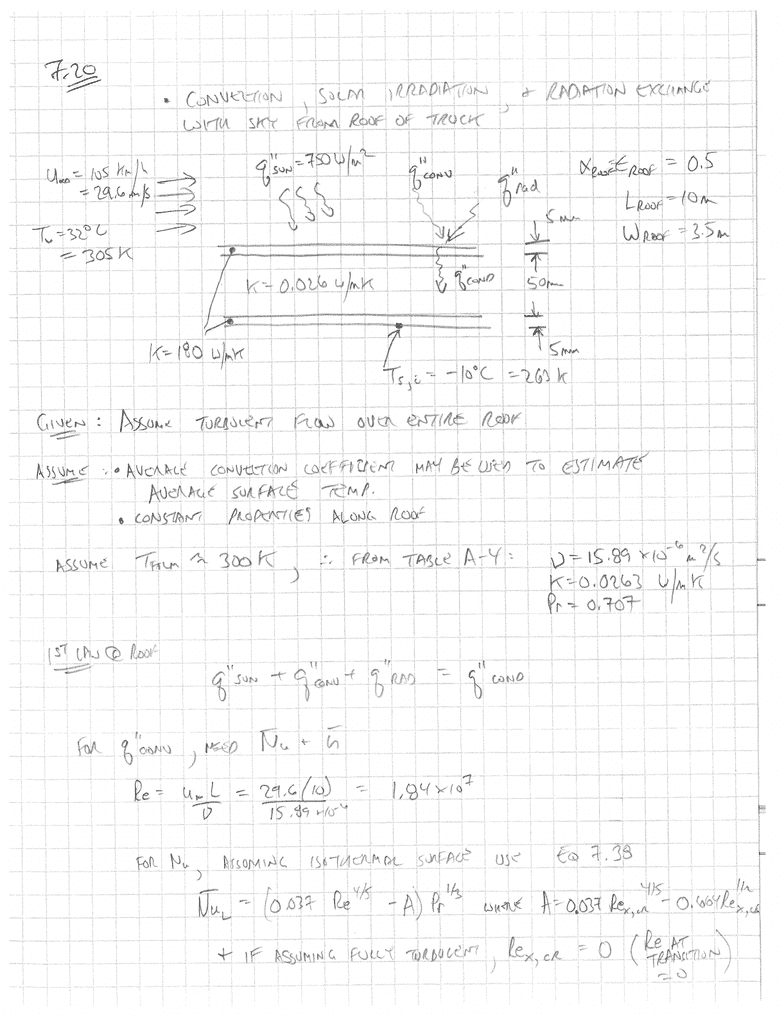 7.20
• CONVECTION, SOLAR IRRADIATION, + RADIATION EXCHANGE
WITH SKY FROM ROOF OF TRUCK
U∞ = 105 Km/h
= 29.6 m/s
T∞ = 32°C
= 305 K
q"SUN = 750 W/m²
q"CONV
q"rad
αROOF = εROOF = 0.5
LROOF = 10m
WROOF = 3.5m
5mm
K = 0.026 W/mK
q"COND
50mm
K = 180 W/mK
5mm
Ts,i = -10°C = 263 K
GIVEN: ASSUME TURBULENT FLOW OVER ENTIRE ROOF
ASSUME: • AVERAGE CONVECTION COEFFICIENT MAY BE USED TO ESTIMATE
AVERAGE SURFACE TEMP.
• CONSTANT PROPERTIES ALONG ROOF
ASSUME TFILM ≈ 300K, ∴ FROM TABLE A-4: ν = 15.89 x10⁻⁶ m²/s
K = 0.0263 W/mK
Pr = 0.707
1ST LAW @ ROOF
q"SUN + q"CONV + q"RAD = q"COND
FOR q"CONV, NEED N̄u + h̄
Re = u∞L/ν = 29.6(10)/15.89x10⁻⁶ = 1.84x10⁷
FOR Nu, ASSUMING ISOTHERMAL SURFACE USE EQ 7.38
N̄uL = (0.037 Re^4/5 - A) Pr^1/3 WHERE A = 0.037 Rex,cr^4/5 - 0.664 Rex,cr^1/2
+ IF ASSUMING FULLY TURBULENT, Rex,cr = 0 (Re AT TRANSITION = 0)